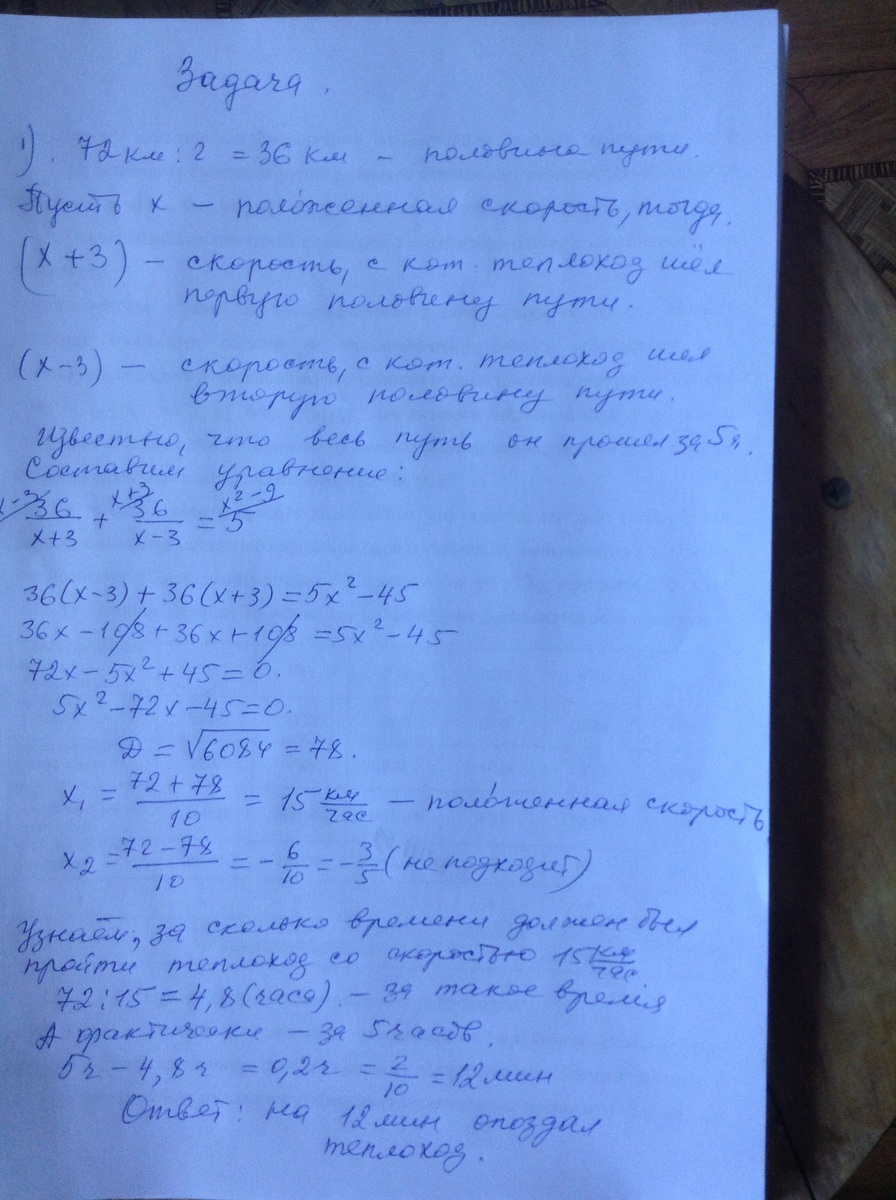 Задача.
1). 72 км : 2 = 36 км – половина пути.
Пусть x – поло́женная скорость, тогда.
(x + 3) – скорость, с кот. теплоход шёл
первую половину пути.
(x – 3) – скорость, с кот. теплоход шел
вторую половину пути.
Известно, что весь путь он прошел за 5ч.
Составим уравнение:
x-3 x+3 x²-9
36/(x+3) + 36/(x-3) = 5
36(x-3) + 36(x+3) = 5x² - 45
36x - 108 + 36x + 108 = 5x² - 45
72x - 5x² + 45 = 0.
5x² - 72x - 45 = 0.
D = √6084 = 78.
x₁ = (72 + 78)/10 = 15 км/час – поло́женная скорость
x₂ = (72 - 78)/10 = -6/10 = -3/5 (не подходит)
Узнаём, за сколько времени должен был
пройти теплоход со скоростью 15 км/час
72 : 15 = 4,8 (часа). – за такое время
А фактически – за 5 часов.
5ч - 4,8ч = 0,2ч = 2/10 = 12 мин
Ответ: на 12 мин опоздал
теплоход.